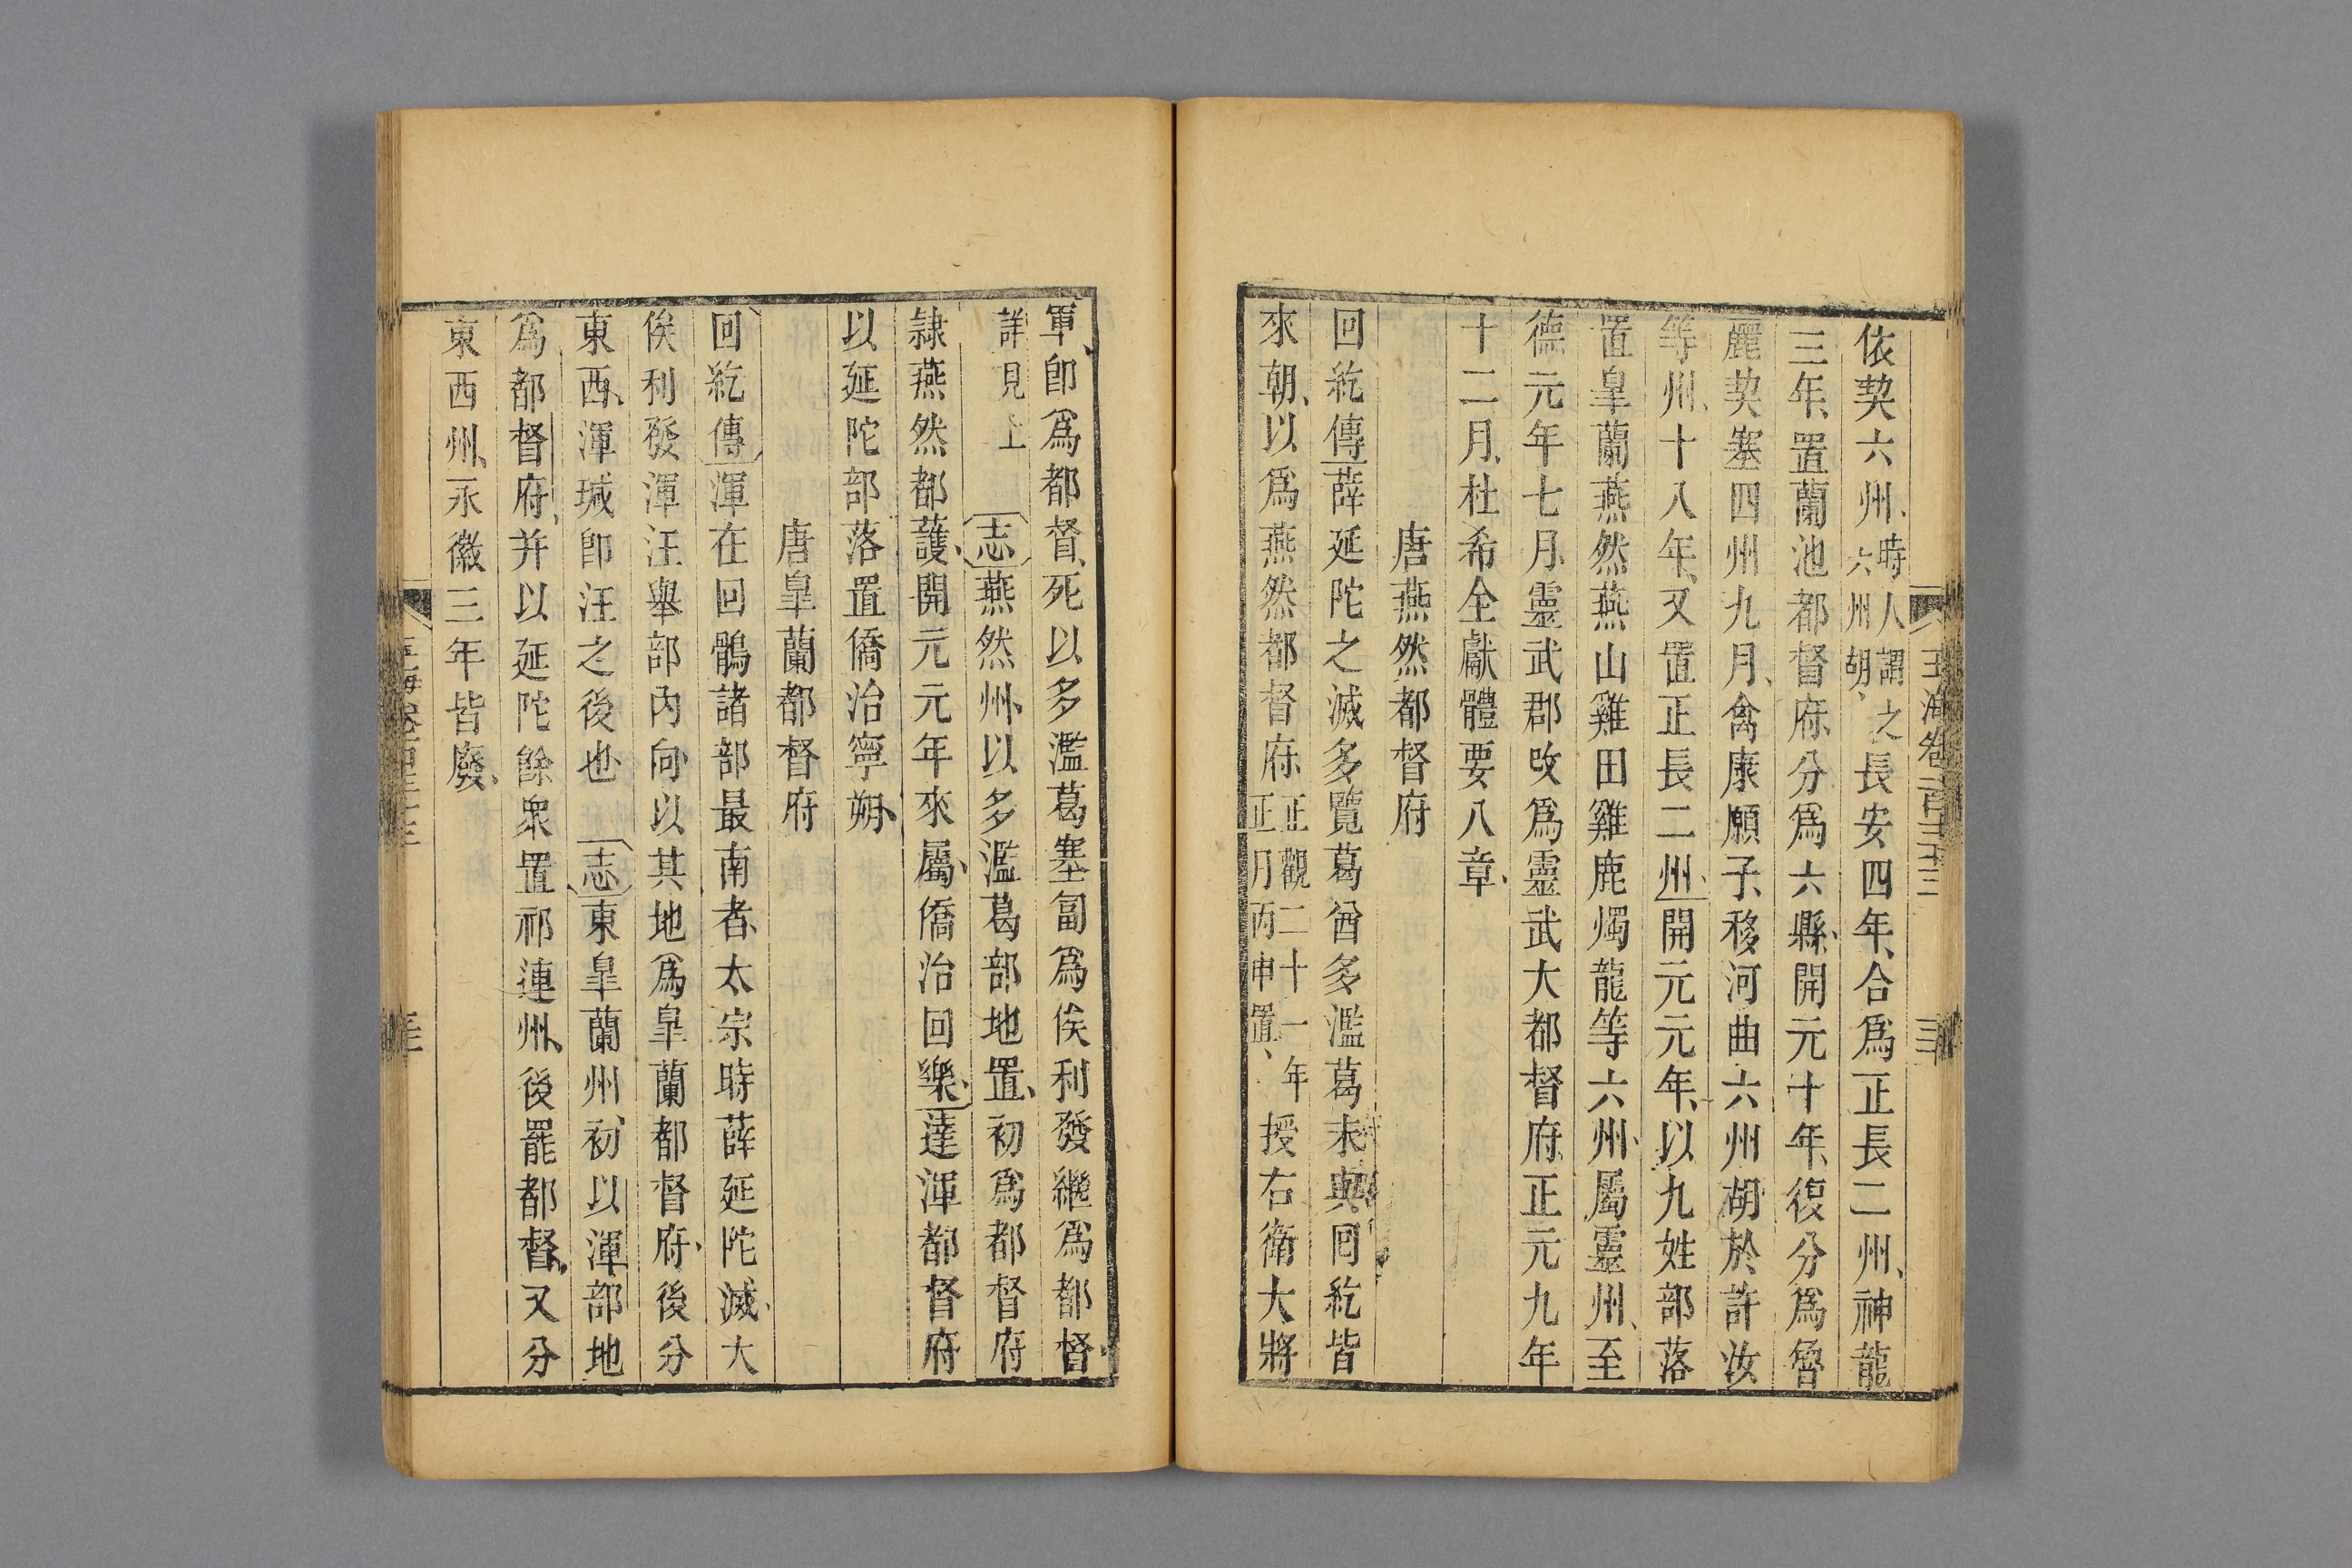 玉海卷一百三十三
依契六州時人謂之六州胡長安四年合爲匡長二州神龍
三年置蘭池都督府分爲六縣開元十年復分爲魯
麗契塞四州九月禽康願子移河曲六州胡於許汝
等州十八年又置匡長二州開元元年以九姓部落
置皐蘭燕然燕山雞田雞鹿燭龍等六州屬靈州至
德元年七月靈武郡改爲靈武大都督府正元九年
十二月杜希全獻體要八章
唐燕然都督府
回紇傳薛延陀之滅多覽葛酋多濫葛末與回紇皆
來朝以爲燕然都督府正觀二十一年正月丙申置授右衛大將
軍卽爲都督死以多濫葛塞匐爲俟利發繼爲都督
詳見上志燕然州以多濫葛部地置初爲都督府
隷燕然都護開元元年來屬僑治回樂達渾都督府
以延陀部落置僑治寧朔
唐皐蘭都督府
回紇傳渾在回鶻諸部最南者太宗時薛延陀滅大
俟利發渾汪舉部內向以其地爲皐蘭都督府後分
東西渾瑊卽汪之後也志東皐蘭州初以渾部地
爲都督府并以延陀餘衆置祁連州後罷都督又分
東西州永徽三年皆廢